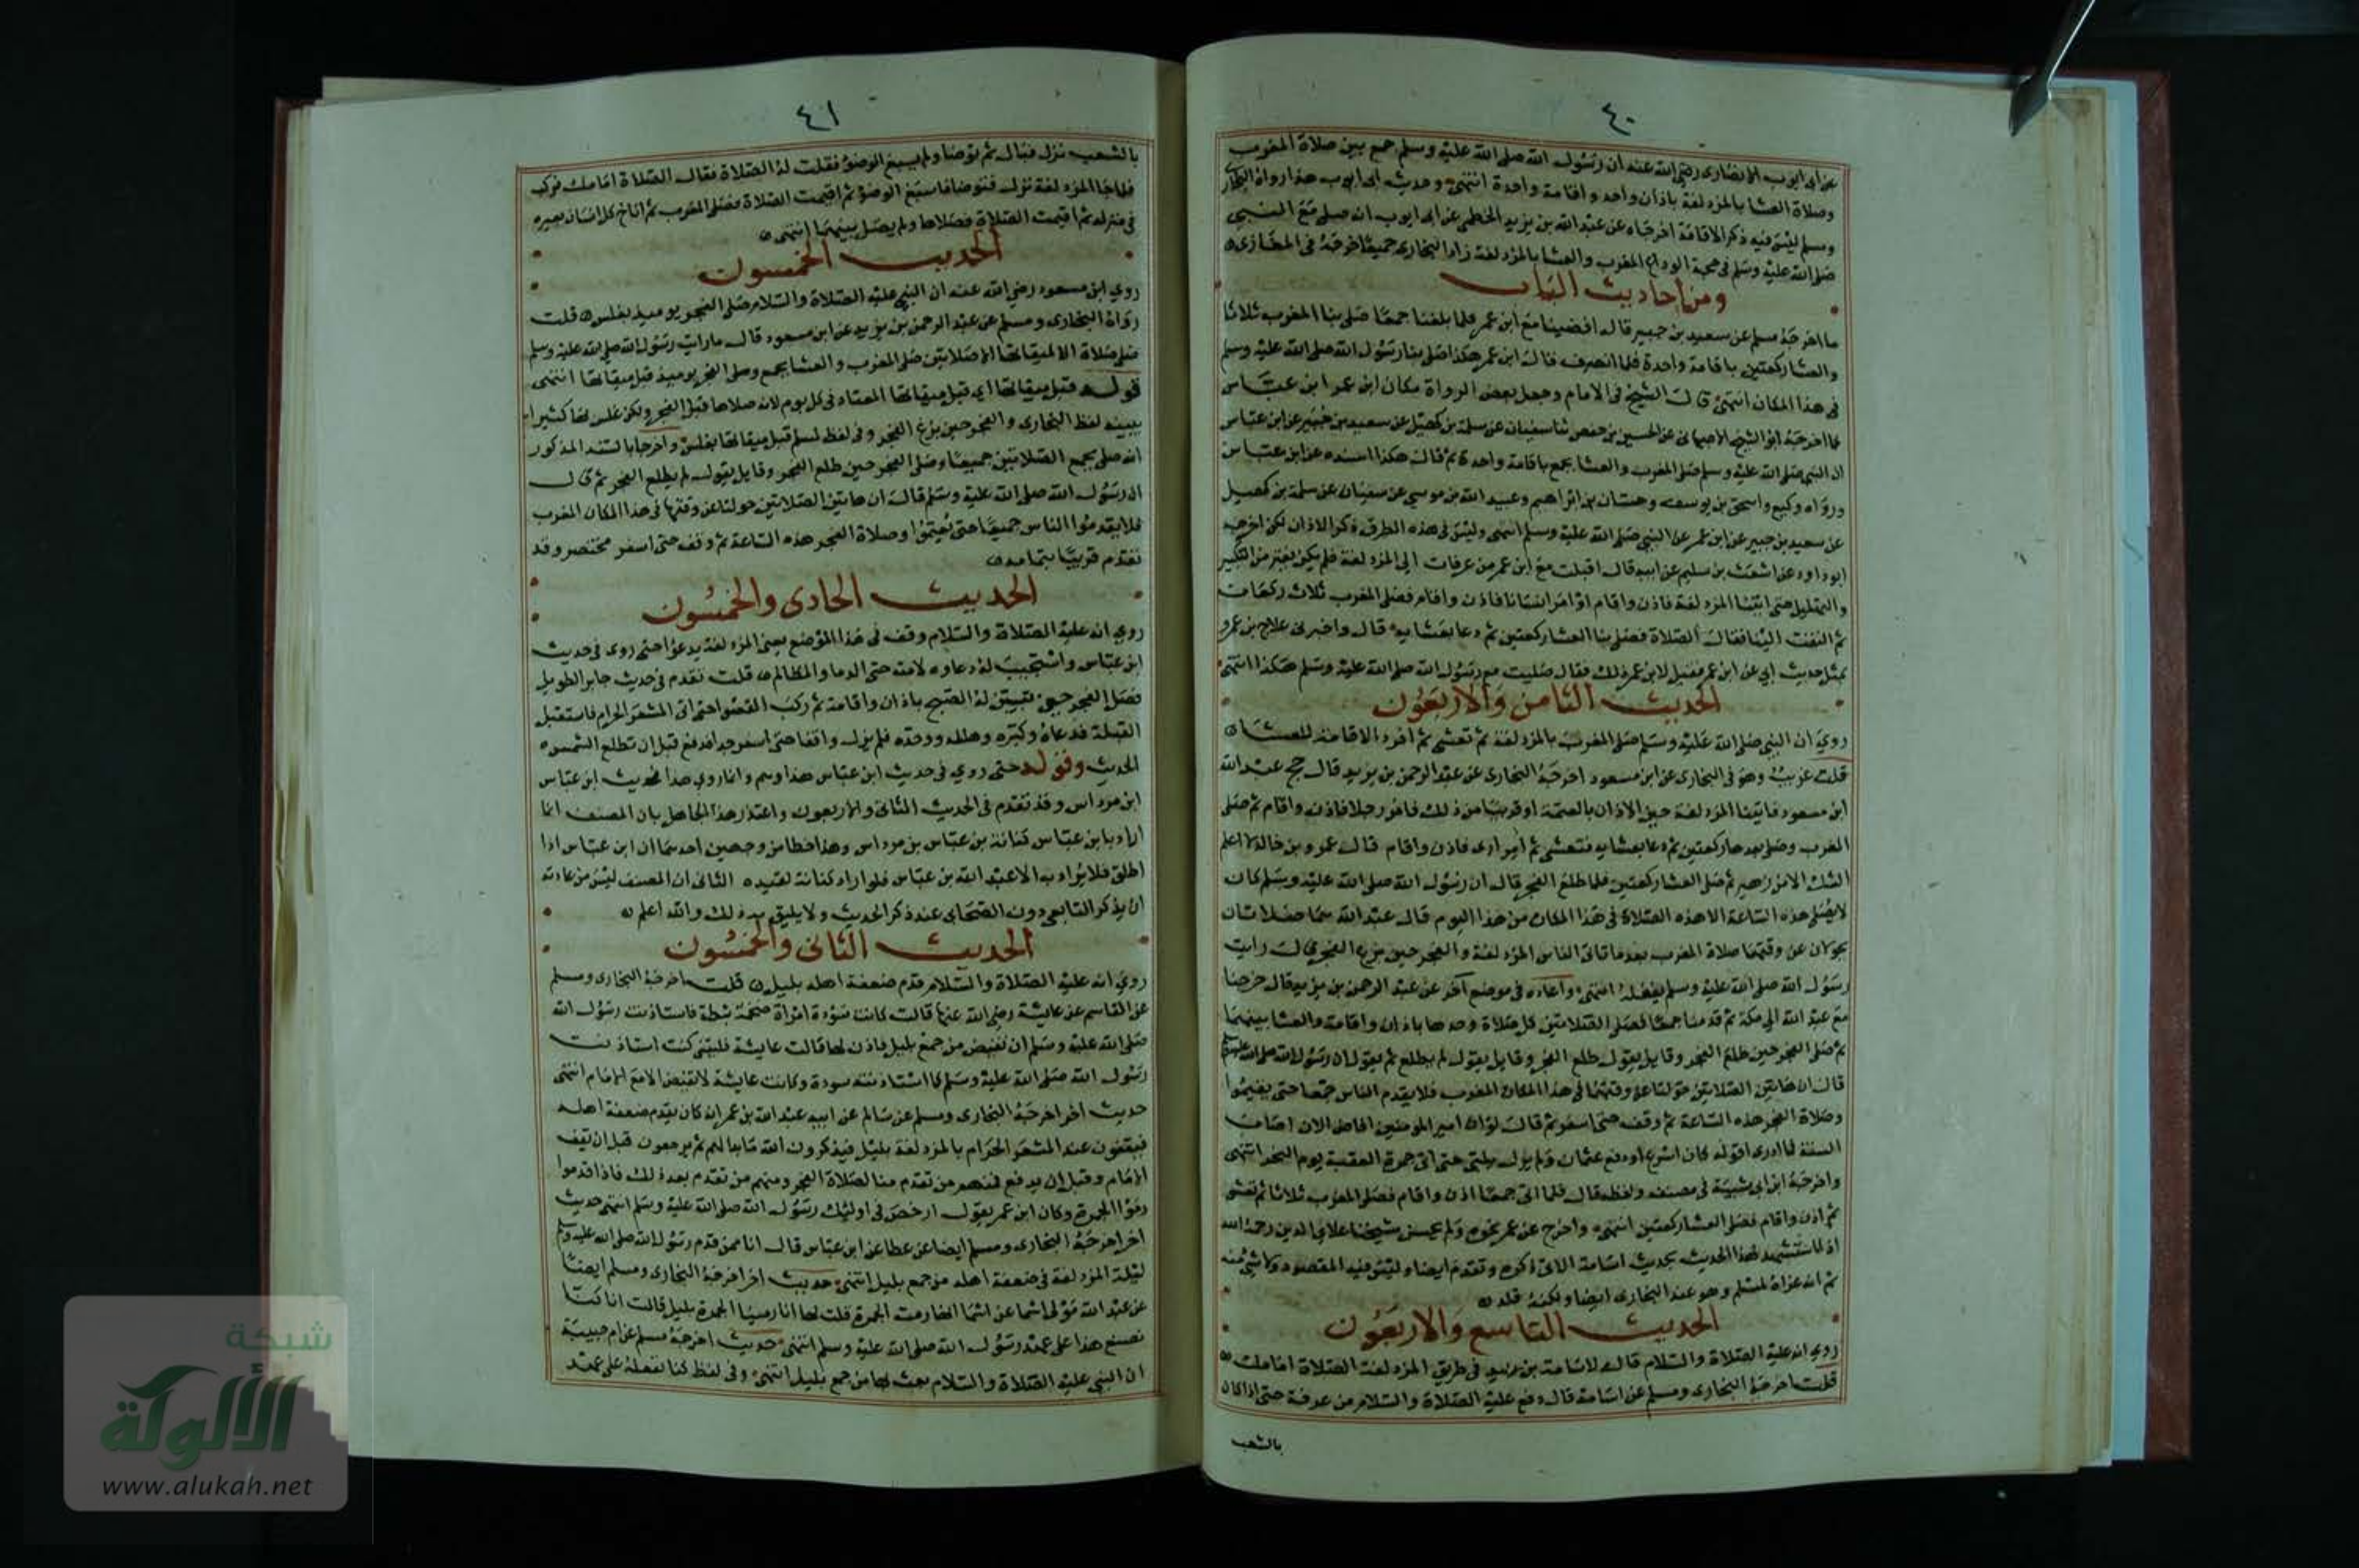 ٤٠
عن ابى ايوب الانصارى رضى الله عنه ان رسول الله صلى الله عليه وسلم جمع بين صلاة المغرب
وصلاة العشا بالمزدلفة باذان واحد واقامة واحدة انتهى وحديث ابى ايوب هذا رواه البخارى
ومسلم ليس فيه ذكر الاقامة اخرجاه عن عبد الله بن يزيد الخطمى عن ابى ايوب انه صلى مع النبى
صلى الله عليه وسلم فى حجة الوداع المغرب والعشا بالمزدلفة زاد البخارى جميعا اخرجه فى المغازى
ومن احاديث الباب
ما اخرجه مسلم عن سعيد بن جبير قال افضينا مع ابن عمر فلما بلغنا جمعا صلى بنا المغرب ثلاثا
والعشا ركعتين باقامة واحدة فلما انصرف قال ابن عمر هكذا صلى بنا رسول الله صلى الله عليه وسلم
فى هذا المكان انتهى قال الشيخ فى الامام وجعل بعض الرواة مكان ابن عمر ابن عباس
كما اخرجه ابو الشيخ الاصبهانى عن الحسين بن حفص ثنا سفيان عن سلمة بن كهيل عن سعيد بن جبير عن ابن عباس
ان النبى صلى الله عليه وسلم صلى المغرب والعشا بجمع باقامة واحدة ثم قال هكذا اسنده عن ابن عباس
ورواه وكيع واسحق بن يوسف وحسان بن ابراهيم وعبيد الله بن موسى عن سفيان عن سلمة بن كهيل
عن سعيد بن جبير عن ابن عمر عن النبى صلى الله عليه وسلم انتهى وليس فى هذه الطرق ذكر الاذان لكن اخرجه
ابو داود عن اشعث بن سليم عن ابيه قال اقبلت مع ابن عمر من عرفات الى المزدلفة فلم يكن يفتر من التكبير
والتهليل حتى اتينا المزدلفة فاذن واقام او امر انسانا فاذن واقام فصلى المغرب ثلاث ركعات
ثم التفت الينا فقال الصلاة فصلى بنا العشا ركعتين ثم دعا بعشايه قال واخبرنى علاج بن عمرو
بمثل حديث ابى عن ابن عمر فقيل لابن عمر ذلك فقال صليت مع رسول الله صلى الله عليه وسلم هكذا انتهى
الحديث الثامن والاربعون
روي ان النبى صلى الله عليه وسلم صلى المغرب بالمزدلفة ثم تعشى ثم افرد الاقامة للعشا
قلت غريب وهو فى البخارى عن ابن مسعود اخرجه البخارى عن عبد الرحمن بن يزيد قال حج عبد الله
ابن مسعود فاتينا المزدلفة حين الاذان بالعتمة او قريبا من ذلك فامر رجلا فاذن واقام ثم صلى
المغرب وصلى بعدها ركعتين ثم دعا بعشايه فتعشى ثم امر ارى فاذن واقام قال عمرو بن خالد لا اعلم
الشك الا من زهير ثم صلى العشا ركعتين فلما طلع الفجر قال ان رسول الله صلى الله عليه وسلم كان
لا يصلى هذه الساعة الا هذه الصلاة فى هذا المكان من هذا اليوم قال عبد الله هما صلاتان
تحولان عن وقتهما صلاة المغرب بعد ما تاتى الناس المزدلفة والفجر حين بزغ الفجر قال رايت
رسول الله صلى الله عليه وسلم يفعله انتهى واعاده فى موضع آخر عن عبد الرحمن بن يزيد قال خرجنا
مع عبد الله الى مكة ثم قدمنا جمعا فصلى الصلاتين كل صلاة وحدها باذان واقامة والعشا بينهما
ثم صلى الفجر حين طلع الفجر وقايل يقول طلع الفجر وقايل يقول لم يطلع ثم يقول ان رسول الله صلى الله عليه وسلم
قال ان هاتين الصلاتين حولتا عن وقتهما فى هذا المكان المغرب فلا يقدم الناس جمعا حتى يعتموا
وصلاة الفجر هذه الساعة ثم وقف حتى اسفر ثم قال لو ان امير المومنين افاض الان اصاب
السنة فما ادرى اقوله كان اسرع او دفع عثمان ولم يزل يلبى حتى اتى جمرة العقبة يوم النحر انتهى
واخرجه ابن ابى شيبة فى مصنفه ولفظه قال فلما اتى جمعا اذن واقام فصلى المغرب ثلاثا ثم تعشى
ثم اذن واقام فصلى العشا ركعتين انتهى واخرج عن عمر نحوه ولم يحسن شيخنا علا الدين رحمه الله
اذ استشهد لهذا الحديث بحديث اسامة الاتى ذكره وتقدم ايضا وليس فيه المقصود
ثم انه عزاه لمسلم وهو عند البخارى ايضا ولكنه قلد
الحديث التاسع والاربعون
روي انه عليه الصلاة والسلام قال لاسامة بن زيد فى طريق المزدلفة الصلاة امامك
قلت اخرجه البخارى ومسلم عن اسامة قال دفع عليه الصلاة والسلام من عرفة حتى اذا كان
بالشعب
٤١
بالشعب نزل فبال ثم توضا ولم يسبغ الوضوء فقلت له الصلاة فقال الصلاة امامك فركب
فلما جا المزدلفة نزل فتوضا فاسبغ الوضوء ثم اقيمت الصلاة فصلى المغرب ثم اناخ كل انسان بعيره
فى منزله ثم اقيمت الصلاة فصلاها ولم يصل بينهما انتهى
الحديث الخمسون
روي ابن مسعود رضى الله عنه ان النبى عليه الصلاة والسلام صلى الفجر يوميذ بغلس قلت
رواه البخارى ومسلم عن عبد الرحمن بن يزيد عن ابن مسعود قال ما رايت رسول الله صلى الله عليه وسلم
صلى صلاة الا لميقاتها الا صلاتين صلى المغرب والعشا بجمع وصلى الفجر يوميذ قبل ميقاتها انتهى
قوله قبل ميقاتها اى قبل ميقاتها المعتاد فى كل يوم لا انه صلاها قبل الفجر ولكن غلس بها كثيرا
يبينه لفظ البخارى والفجر حين بزغ الفجر وفى لفظ لمسلم قبل ميقاتها بغلس واخرجا بالسند المذكور
انه صلى بجمع الصلاتين جميعا وصلى الفجر حين طلع الفجر وقايل يقول لم يطلع الفجر ثم قال
ان رسول الله صلى الله عليه وسلم قال ان هاتين الصلاتين حولتا عن وقتهما فى هذا المكان المغرب
فلا يقدموا الناس جميعا حتى يعتموا وصلاة الفجر هذه الساعة ثم وقف حتى اسفر مختصر وقد
تقدم قريبا بتمامه
الحديث الحادى والخمسون
روي انه عليه الصلاة والسلام وقف فى هذا الموضع يعنى المزدلفة يدعوا حتى روى فى حديث
ابن عباس واستجيب له دعاوه لامته حتى الدما والمظالم قلت تقدم فى حديث جابر الطويل
فصلى الفجر حين تبين له الصبح باذان واقامة ثم ركب القصوا حتى اتى المشعر الحرام فاستقبل
القبلة فدعاه وكبره وهلله ووحده فلم يزل واقفا حتى اسفر جدا فدفع قبل ان تطلع الشمس
الحديث وقوله حتى روي فى حديث ابن عباس هذا وهم وانما روي هذا فى حديث ابن عباس
ابن مرداس وقد تقدم فى الحديث الثانى والاربعون واعتذر هذا الجاهل بان المصنف انما
اراد بابن عباس كنانة بن عباس بن مرداس وهذا خطا من وجهين احدهما ان ابن عباس اذا
اطلق فلا يراد به الا عبد الله بن عباس فلو اراد كنانة لقيده الثانى ان المصنف ليس من عادته
ان يذكر التابعى دون الصحابى عند ذكر الحديث ولا يليق به ذلك والله اعلم
الحديث الثانى والخمسون
روي انه عليه الصلاة والسلام قدم ضعفة اهله بليل قلت اخرجه البخارى ومسلم
عن القاسم عن عايشة رضى الله عنها قالت كانت سودة امراة ضخمة ثبطة فاستاذنت رسول الله
صلى الله عليه وسلم ان تفيض من جمع بليل فاذن لها قالت عايشة فليتنى كنت استاذنت
رسول الله صلى الله عليه وسلم كما استاذنته سودة وكانت عايشة لا تفيض الا مع الامام انتهى
حديث اخر اخرجه البخارى ومسلم عن سالم عن ابيه عبد الله بن عمر انه كان يقدم ضعفة اهله
فيقفون عند المشعر الحرام بالمزدلفة بليل فيذكرون الله ما بدا لهم ثم يرجعون قبل ان يقف
الامام وقبل ان يدفع فمنهم من تقدم منا لصلاة الفجر ومنهم من تقدم بعد ذلك فاذا قدموا
رموا الجمرة وكان ابن عمر يقول ارخص فى اوليك رسول الله صلى الله عليه وسلم انتهى حديث
اخر اخرجه البخارى ومسلم ايضا عن عطا عن ابن عباس قال انا ممن قدم رسول الله صلى الله عليه وسلم
ليلة المزدلفة فى ضعفة اهله من جمع بليل انتهى حديث اخر اخرجه البخارى ومسلم ايضا
عن عبد الله مولى اسما عن اسما انها رمت الجمرة قلت لها انا رمينا الجمرة بليل قالت انا كنا
نصنع هذا على عهد رسول الله صلى الله عليه وسلم انتهى حديث اخرجه مسلم عن ام حبيبة
ان النبى عليه الصلاة والسلام بعث بها من جمع بليل انتهى وفى لفظ كنا نفعله على عهد
شبكة
الألوكة
www.alukah.net